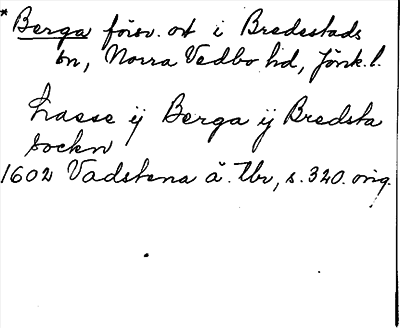 * Berga försv. ort i Bredestads
sn, Norra Vedbo hd, Jönk. l.
Lasse ij Berga ij Bredsta
sockn
1602 Vadstena ä. tbr, s. 320. orig.